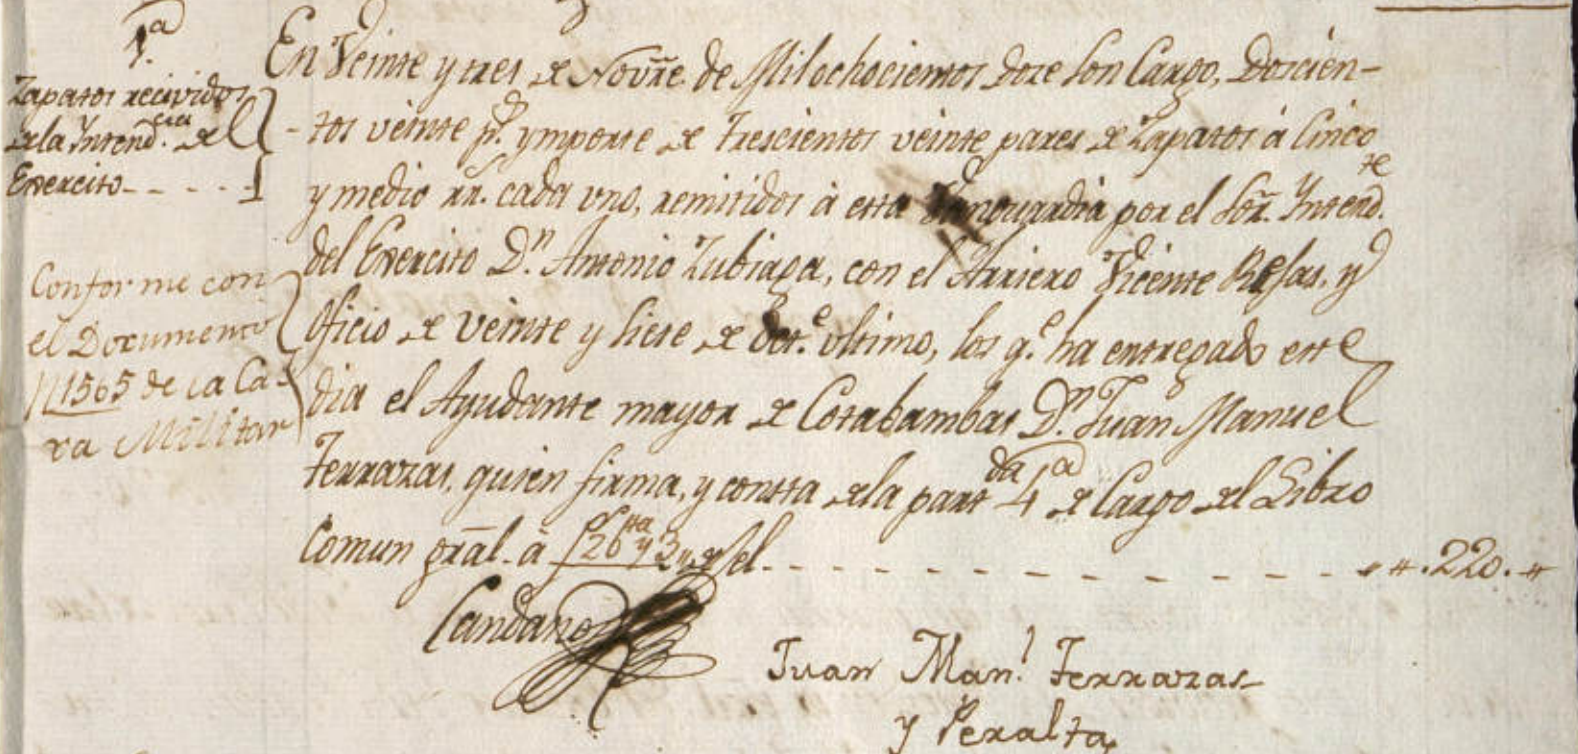 1.ª
Zapatos recividos
de la Yntend.cia del
Exercito - - - - -
Conforme con
el Documento
N 1565 de la Ca-
xa Militar
En Veinte y tres de Novre. de Mil ochocientos doze son Cargo, Doscien-
-tos veinte p.s ymporte de trescientos veinte pares de Zapatos á Cinco
y medio rr. cada uno, remitidos á esta Vanguardia por el Sor. Yntend.te
del Exercito D.n Antonio Zubiaga, con el Arriero Vicente Rosas, y
Oficio de veinte y siete de Oct.e ultimo, los q.e ha entregado este
dia el Ayudante mayor de Cotabambas D.n Juan Manuel
Terrazas, quien firma, y consta de la part.da 4.a de Cargo del Libro
Comun gral. á f 26 y 3 de el. - - - - - - - - - - - - 220.
Candano
Juan Man.l Terrazas
y Peralta